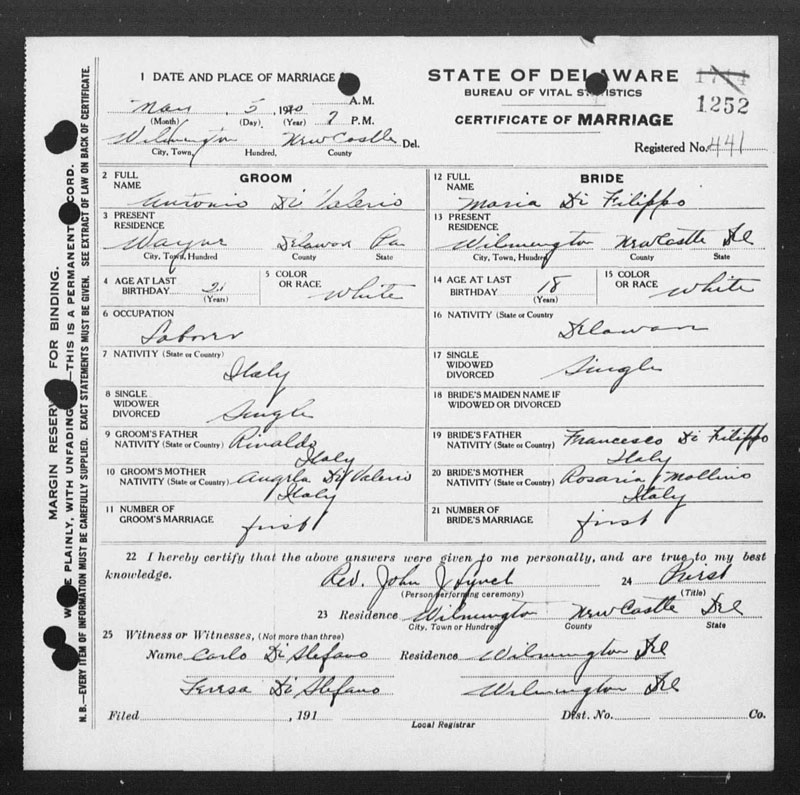 1 DATE AND PLACE OF MARRIAGE
STATE OF DELAWARE 1744
BUREAU OF VITAL STATISTICS 1252
CERTIFICATE OF MARRIAGE
Registered No. 441
May 5 1920 7 A.M. P.M.
(Month) (Day) (Year)
Wilmington New Castle Del.
City, Town, Hundred, County
2 FULL NAME GROOM
Antonio Di Valerio
3 PRESENT RESIDENCE
Wayne Delawar Pa
City, Town, Hundred County State
4 AGE AT LAST BIRTHDAY 21 (Years)
5 COLOR OR RACE White
6 OCCUPATION
Laborer
7 NATIVITY (State or Country)
Italy
8 SINGLE WIDOWER DIVORCED
Single
9 GROOM'S FATHER Rinaldo
NATIVITY (State or Country) Italy
10 GROOM'S MOTHER Angela Di Valerio
NATIVITY (State or Country) Italy
11 NUMBER OF GROOM'S MARRIAGE first
12 FULL NAME BRIDE
Maria Di Filippo
13 PRESENT RESIDENCE
Wilmington New Castle Del
City, Town, Hundred County State
14 AGE AT LAST BIRTHDAY 18 (Years)
15 COLOR OR RACE White
16 NATIVITY (State or Country)
Delawar
17 SINGLE WIDOWED DIVORCED
Single
18 BRIDE'S MAIDEN NAME IF WIDOWED OR DIVORCED
19 BRIDE'S FATHER Francesco Di Filippo
NATIVITY (State or Country) Italy
20 BRIDE'S MOTHER Rosaria Mollino
NATIVITY (State or Country) Italy
21 NUMBER OF BRIDE'S MARRIAGE first
22 I hereby certify that the above answers were given to me personally, and are true to my best
knowledge. Rev. John J Lynch 24 Priest
(Person performing ceremony) (Title)
23 Residence Wilmington New Castle Del
City, Town or Hundred County State
25 Witness or Witnesses, (Not more than three)
Name Carlo Di Stefano Residence Wilmington Del
Teresa Di Stefano Wilmington Del
Filed , 191 Dist. No. Co.
Local Registrar
MARGIN RESERV FOR BINDING.
W E PLAINLY, WITH UNFADING —THIS IS A PERMANENT CORD.
N.B.—EVERY ITEM OF INFORMATION MUST BE CAREFULLY SUPPLIED. EXACT STATEMENTS MUST BE GIVEN. SEE EXTRACT OF LAW ON BACK OF CERTIFICATE.